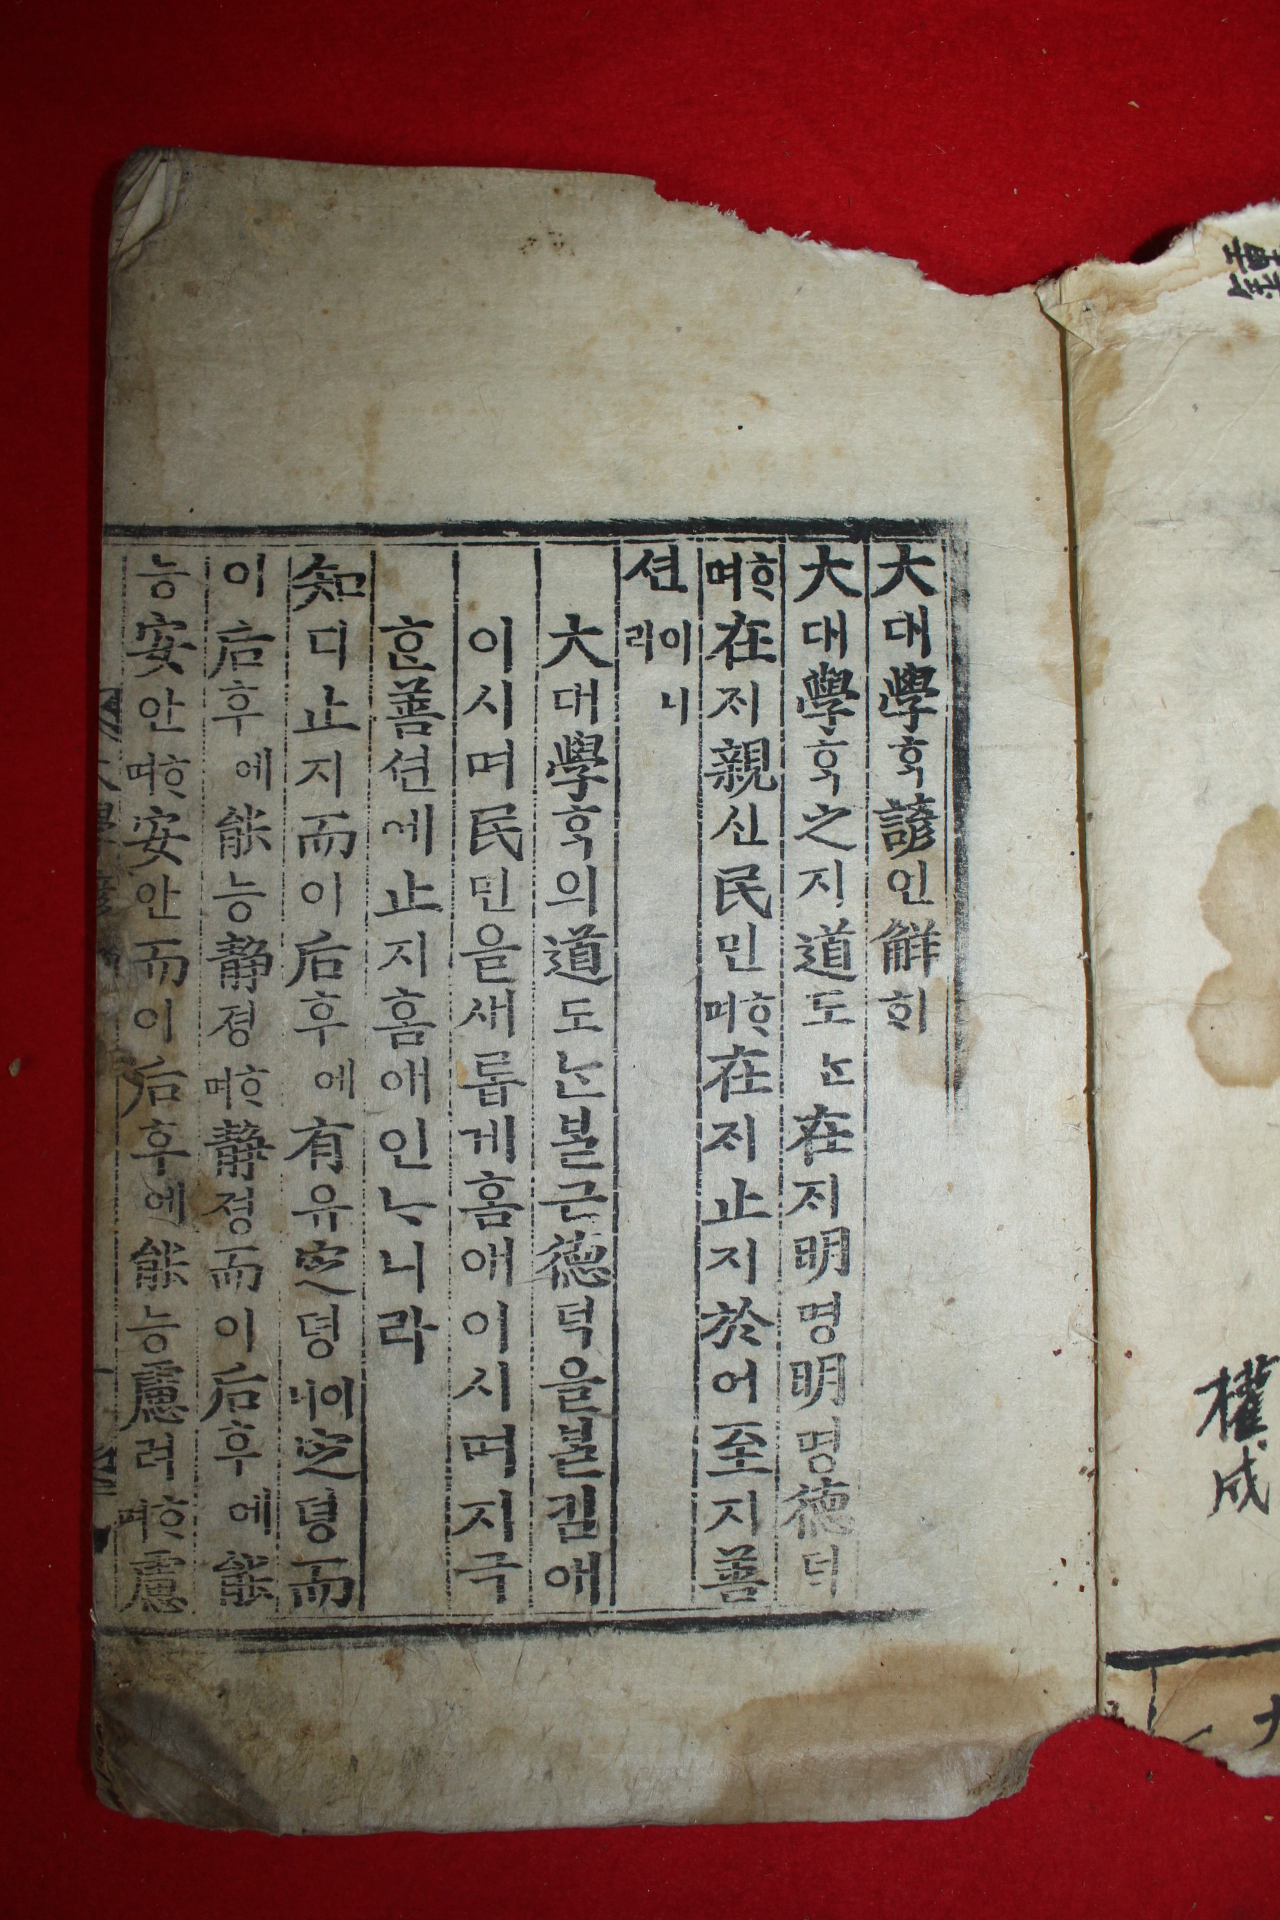 大대學ᄒᆞᆨ諺언解ᄒᆡ
大대學ᄒᆞᆨ之지道도ᄂᆞᆫ在ᄌᆡ明명明명德덕
ᄒᆞ며在ᄌᆡ親신民민ᄒᆞ며在ᄌᆡ止지於어至지善
션이니리
大대學ᄒᆞᆨ의道도ᄂᆞᆫ ᄇᆞᆯ근德덕을ᄇᆞᆯ킴애
이시며民민을새롭게홈애이시며지극
ᄒᆞᆫ善션에止지홈애인ᄂᆞ니라
知디止지而이后후에有유定뎡이니定뎡而
이后후에能능靜졍ᄒᆞ며靜졍而이后후에能
능安안ᄒᆞ며安안而이后후에能능慮려ᄒᆞ며慮
權成